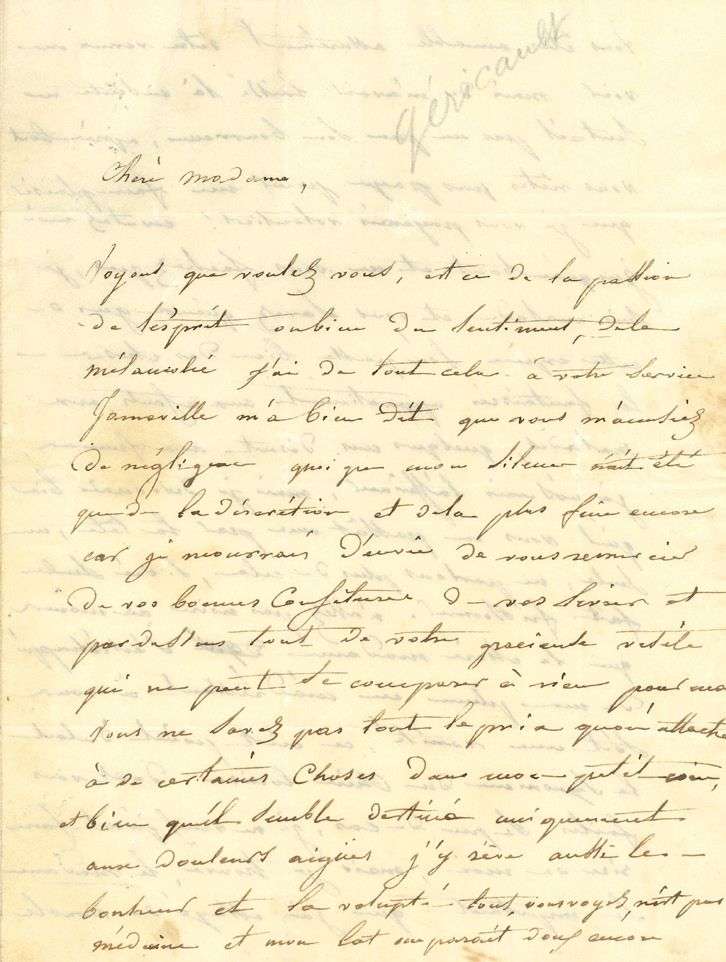 gericault
Chère madame,
Voyons que voulez vous, est ce de la passion
de l'esprit oubien du sentiment, dela
mélancolié j'ai de tout cela à votre service
Jamoville m'a bien dit que vous m'accusiez
de négligence quoique mon silence n'ait été
que de la discrétion et dela plus fine encore
car je mourrais d'envie de vous remercier
de vos bonnes confitures de vos livres et
pardessus tout de votre gracieuse
qui ne peut se comparer à rien pour moi
vous ne savez pas tout le prix qu'on attache
à de certaines choses dans mon petit coin,
et bien qu'il semble destiné uniquement
aux douleurs aigües j'y rêve aussi le
bonheur et la volupté tout, vous voyez, n'est pas
médecine et mon lot me parait doux encore